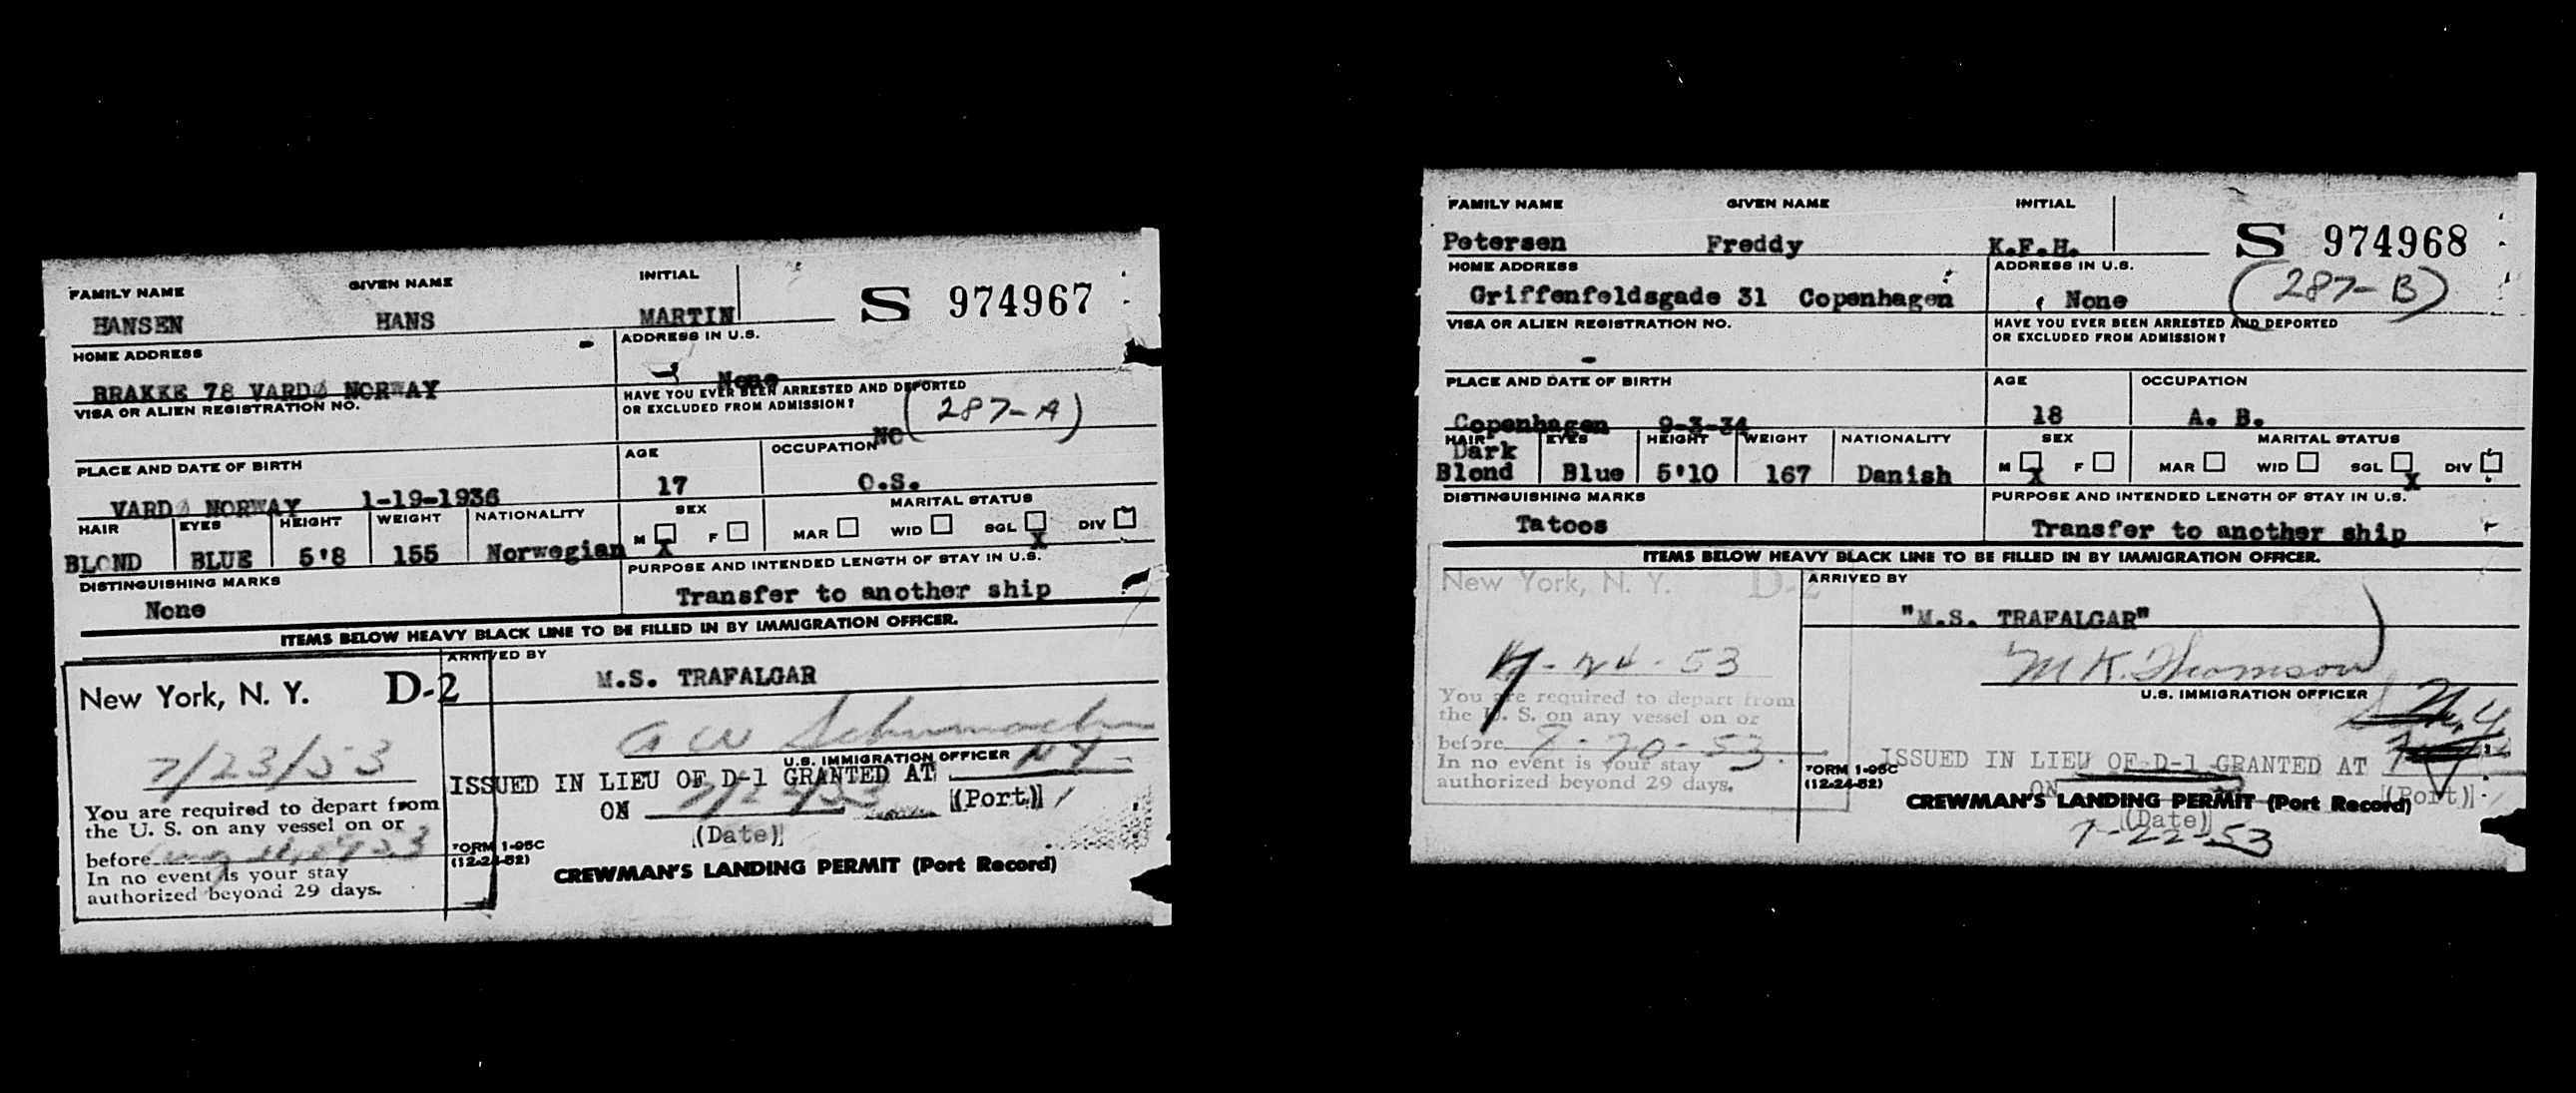 FAMILY NAME GIVEN NAME INITIAL
HANSEN HANS MARTIN S 974967
HOME ADDRESS ADDRESS IN U.S.
BRAKKE 78 VARDØ NORWAY None
VISA OR ALIEN REGISTRATION NO. HAVE YOU EVER BEEN ARRESTED AND DEPORTED
OR EXCLUDED FROM ADMISSION?
NO (287-A)
PLACE AND DATE OF BIRTH AGE OCCUPATION
VARDØ NORWAY 1-19-1936 17 O.S.
HAIR EYES HEIGHT WEIGHT NATIONALITY SEX MARITAL STATUS
BLOND BLUE 5'8 155 Norwegian M X F MAR WID SGL X DIV
DISTINGUISHING MARKS PURPOSE AND INTENDED LENGTH OF STAY IN U.S.
None Transfer to another ship
ITEMS BELOW HEAVY BLACK LINE TO BE FILLED IN BY IMMIGRATION OFFICER.
ARRIVED BY
New York, N. Y. D-2 M.S. TRAFALGAR
7/23/53
U.S. IMMIGRATION OFFICER
ISSUED IN LIEU OF D-1 GRANTED AT NY
ON (Port)
(Date)
You are required to depart from
the U. S. on any vessel on or
before
In no event is your stay
authorized beyond 29 days.
FORM I-95C
(12-24-52)
CREWMAN'S LANDING PERMIT (Port Record)
FAMILY NAME GIVEN NAME INITIAL
Petersen Freddy K.F.H. S 974968
HOME ADDRESS ADDRESS IN U.S.
Griffenfeldsgade 31 Copenhagen None (287-B)
VISA OR ALIEN REGISTRATION NO. HAVE YOU EVER BEEN ARRESTED AND DEPORTED
OR EXCLUDED FROM ADMISSION?
-
PLACE AND DATE OF BIRTH AGE OCCUPATION
Copenhagen 9-3-34 18 A. B.
HAIR EYES HEIGHT WEIGHT NATIONALITY SEX MARITAL STATUS
Dark
Blond Blue 5'10 167 Danish M X F MAR WID SGL X DIV
DISTINGUISHING MARKS PURPOSE AND INTENDED LENGTH OF STAY IN U.S.
Tatoos Transfer to another ship
ITEMS BELOW HEAVY BLACK LINE TO BE FILLED IN BY IMMIGRATION OFFICER.
New York, N. Y. D-2 ARRIVED BY
"M.S. TRAFALGAR"
M K Thomson
U.S. IMMIGRATION OFFICER
You are required to depart from
the U. S. on any vessel on or
before
In no event is your stay
authorized beyond 29 days.
ISSUED IN LIEU OF D-1 GRANTED AT
ON (Port)
(Date)
7-22-53
FORM I-95C
(12-24-52)
CREWMAN'S LANDING PERMIT (Port Record)